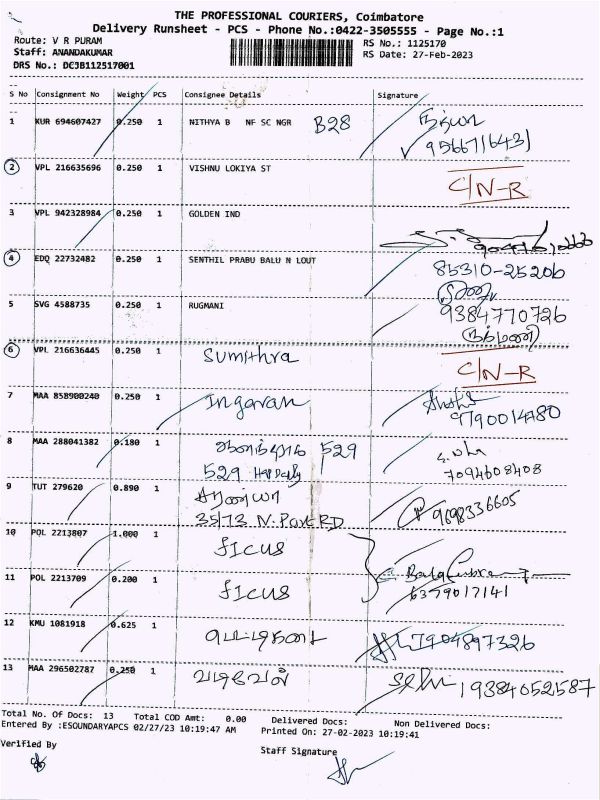 THE PROFESSIONAL COURIERS, Coimbatore
Delivery Runsheet - PCS - Phone No.:0422-3505555 - Page No.:1
Route: V R PURAM RS No.: 1125170
Staff: ANANDAKUMAR RS Date: 27-Feb-2023
DRS No.: DCJB112517001
S No Consignment No Weight PCS Consignee Details Signature
1 KUR 694607427 0.250 1 NITHYA B NF SC NGR B28 நித்யா
9566716431
2 VPL 216635696 0.250 1 VISHNU LOKIYA ST C/N-R
3 VPL 942328984 0.250 1 GOLDEN IND
4 EDQ 22732482 0.250 1 SENTHIL PRABU BALU N LOUT 85310-25206
5 SVG 4588735 0.250 1 RUGMANI 9384770726
6 VPL 216636445 0.250 1 Sumithra C/N-R
7 MAA 858900240 0.250 1 Ingavan
9790014780
8 MAA 288041382 0.180 1 529
529 7094608408
9 TUT 279620 0.890 1 சரண்யா
35/73 N. Park RD 9698336605
10 POL 2213807 1.000 1 ficus
11 POL 2213709 0.200 1 ficus
6379017141
12 KMU 1081918 0.625 1 7904897326
13 MAA 296502787 0.250 1 வடிவேல் 9384052587
Total No. Of Docs: 13 Total COD Amt: 0.00 Delivered Docs: Non Delivered Docs:
Entered By :ESOUNDARYAPCS 02/27/23 10:19:47 AM Printed On: 27-02-2023 10:19:41
Verified By Staff Signature